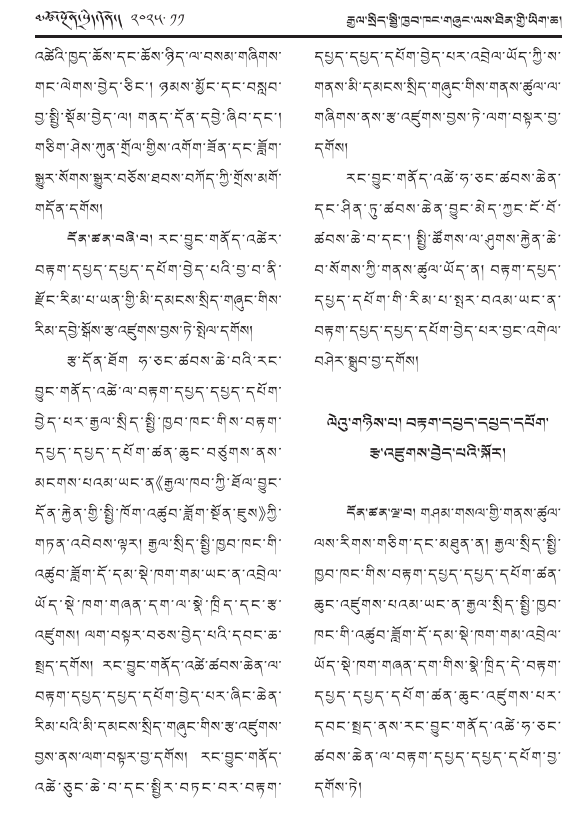 ༢༠༢༥.༡༡
རྒྱལ་སྲིད་སྤྱི་ཁྱབ་ཁང་གཞུང་ལས་ཐིན་གྱི་ཡིག་ཆ།
འཚེའི་ཁྱད་ཆོས་དང་ཆོས་ཉིད་ལ་བསམ་གཞིགས་
གང་ལེགས་བྱེད་ཅིང་། ཉམས་མྱོང་དང་བསླབ་
བྱ་སྤྱི་སྡོམ་བྱེད་ལ། གནད་དོན་དབྱེ་ཞིབ་དང་།
གཅིག་ཤེས་ཀུན་གྲོལ་གྱིས་འགོག་ཟློན་དང་ཟློག་
སྒྱུར་སོགས་སྒྱུར་བཅོས་ཐབས་བཀོད་ཀྱི་གྲོས་མགོ་
གདོན་དགོས།
དོན་ཚན་བཞི་བ། རང་བྱུང་གནོད་འཚེར་
བརྟག་དཔྱད་དཔྱད་དཔོག་བྱེད་པའི་བྱ་བ་ནི་
རྫོང་རིམ་པ་ཡན་གྱི་མི་དམངས་སྲིད་གཞུང་གིས་
རིམ་དབྱེ་སྒོས་རྩ་འཛུགས་བྱས་ཏེ་སྤེལ་དགོས།
རྩ་དོན་ཐོག ཧ་ཅང་ཚབས་ཆེ་བའི་རང་
བྱུང་གནོད་འཚེ་ལ་བརྟག་དཔྱད་དཔྱད་དཔོག་
བྱེད་པར་རྒྱལ་སྲིད་སྤྱི་ཁྱབ་ཁང་གིས་བརྟག་
དཔྱད་དཔྱད་དཔོག་ཚན་ཆུང་བཙུགས་ནས་
མངགས་པའམ་ཡང་ན《རྒྱལ་ཁབ་ཀྱི་ཐོལ་བྱུང་
དོན་རྐྱེན་གྱི་སྤྱི་ཁོག་འཚུབ་ཟློག་སྔོན་ཇུས》ཀྱི་
གཏན་འབེབས་ལྟར། རྒྱལ་སྲིད་སྤྱི་ཁྱབ་ཁང་གི་
འཚུབ་ཟློག་དོ་དམ་སྡེ་ཁག་གམ་ཡང་ན་འབྲེལ་
ཡོད་སྡེ་ཁག་གཞན་དག་ལ་སྣེ་ཁྲིད་དང་རྩ་
འཛུགས། ལག་བསྟར་བཅས་བྱེད་པའི་དབང་ཆ་
སྤྲད་དགོས། རང་བྱུང་གནོད་འཚེ་ཚབས་ཆེན་ལ་
བརྟག་དཔྱད་དཔྱད་དཔོག་བྱེད་པར་ཞིང་ཆེན་
རིམ་པའི་མི་དམངས་སྲིད་གཞུང་གིས་རྩ་འཛུགས་
བྱས་ནས་ལག་བསྟར་བྱ་དགོས། རང་བྱུང་གནོད་
འཚེ་ཅུང་ཆེ་བ་དང་སྤྱིར་བཏང་བར་བརྟག་
དཔྱད་དཔྱད་དཔོག་བྱེད་པར་འབྲེལ་ཡོད་ཀྱི་ས་
གནས་མི་དམངས་སྲིད་གཞུང་གིས་གནས་ཚུལ་ལ་
གཞིགས་ནས་རྩ་འཛུགས་བྱས་ཏེ་ལག་བསྟར་བྱ་
དགོས།
རང་བྱུང་གནོད་འཚེ་ཧ་ཅང་ཚབས་ཆེན་
དང་ཤིན་ཏུ་ཚབས་ཆེན་བྱུང་མེད་ཀྱང་ངོ་བོ་
ཚབས་ཆེ་བ་དང་། སྤྱི་ཚོགས་ལ་ཤུགས་རྐྱེན་ཆེ་
བ་སོགས་ཀྱི་གནས་ཚུལ་ཡོད་ན། བརྟག་དཔྱད་
དཔྱད་དཔོག་གི་རིམ་པ་སྤར་བའམ་ཡང་ན་
བརྟག་དཔྱད་དཔྱད་དཔོག་བྱེད་པར་བྱང་འགེལ་
བཤེར་སྒྲུབ་བྱ་དགོས།
ལེའུ་གཉིས་པ། བརྟག་དཔྱད་དཔྱད་དཔོག་
རྩ་འཛུགས་བྱེད་པའི་སྐོར།
དོན་ཚན་ལྔ་བ། གཤམ་གསལ་གྱི་གནས་ཚུལ་
ལས་རིགས་གཅིག་དང་མཐུན་ན། རྒྱལ་སྲིད་སྤྱི་
ཁྱབ་ཁང་གིས་བརྟག་དཔྱད་དཔྱད་དཔོག་ཚན་
ཆུང་འཛུགས་པའམ་ཡང་ན་རྒྱལ་སྲིད་སྤྱི་ཁྱབ་
ཁང་གི་འཚུབ་ཟློག་དོ་དམ་སྡེ་ཁག་གམ་འབྲེལ་
ཡོད་སྡེ་ཁག་གཞན་དག་གིས་སྣེ་ཁྲིད་དེ་བརྟག་
དཔྱད་དཔྱད་དཔོག་ཚན་ཆུང་འཛུགས་པར་
དབང་སྤྲད་ནས་རང་བྱུང་གནོད་འཚེ་ཧ་ཅང་
ཚབས་ཆེན་ལ་བརྟག་དཔྱད་དཔྱད་དཔོག་བྱ་
དགོས་ཏེ།